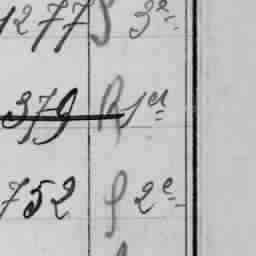 1277 P 3e
379 R 1el
752 P 2e